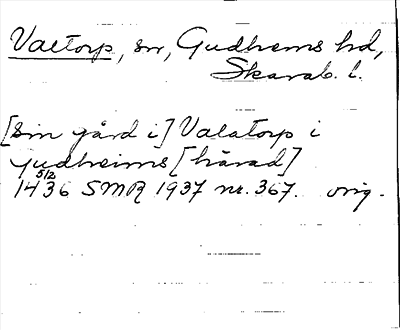 Valtorp, sn, Gudhems hd,
Skarab. l.
[sin gård i] Valatorp i
gudheims [härad]
1436 5/2 SMR 1937 nr. 367. orig.